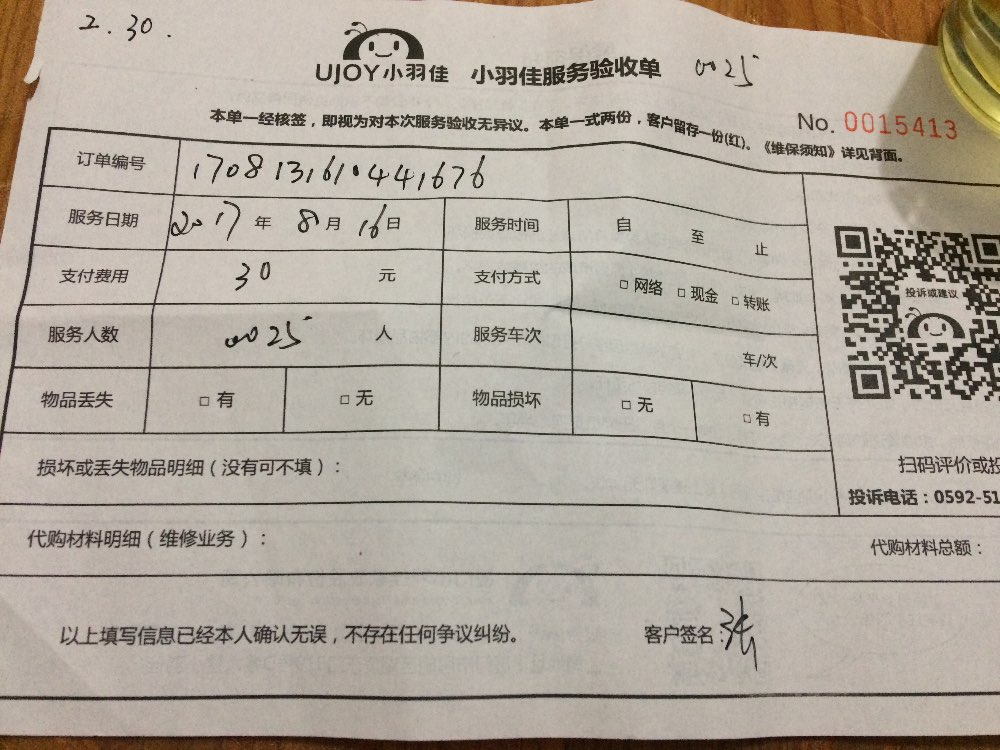 2.30.
UJOY小羽佳 小羽佳服务验收单 0025
No. 0015413
本单一经核签，即视为对本次服务验收无异议。本单一式两份，客户留存一份(红)。《维保须知》详见背面。
订单编号 1708131610441676
服务日期 2017 年 8 月 16 日 服务时间 自 至 止
支付费用 30 元 支付方式 □ 网络 □ 现金 □ 转账
投诉或建议
服务人数 0025 人 服务车次 车/次
物品丢失 □ 有 □ 无 物品损坏 □ 无 □ 有
损坏或丢失物品明细（没有可不填）：
扫码评价或投
投诉电话：0592-51
代购材料明细（维修业务）：
代购材料总额：
以上填写信息已经本人确认无误，不存在任何争议纠纷。 客户签名：张